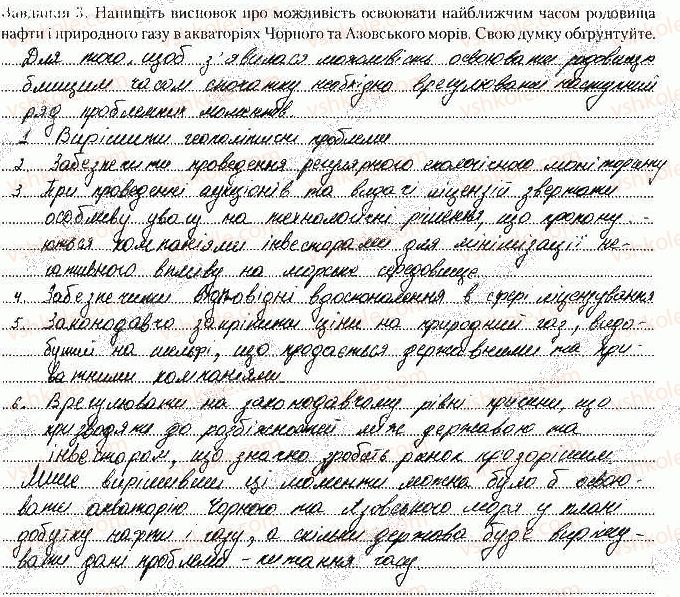 Завдання 3. Напишіть висновок про можливість освоювати найближчим часом родовища
нафти і природного газу в акваторіях Чорного та Азовського морів. Свою думку обґрунтуйте.
Для того, щоб з'явилася можливість освоювати родовища
ближчим часом спочатку необхідно врегулювати наступний
ряд проблемних моментів
1. Вирішити геополітичні проблеми
2. Забезпечити проведення регулярного екологічного моніторингу
3. При проведенні аукціонів та видачі ліцензій звертати
особливу увагу на технологічні рішення, що пропону-
ються компаніями інвесторами для мінімізації не-
гативного впливу на морське середовище.
4. Забезпечити відповідні вдосконалення в сфері ліцензування
5. Законодавчо закріпити ціни на природний газ, видо-
бутий на шельфі, що продається державними та при-
ватними компаніями.
6. Врегулювати на законодавчому рівні причини, що
призводять до розбіжностей між державою та
інвестором, що значно зробить ринок прозорішим.
Лише вирішивши ці моменти можна було б освою-
вати акваторію Чорного та Азовського моря у плані
добутку нафти і газу, а скільки держава буде виріши-
вати дані проблеми - питання часу.